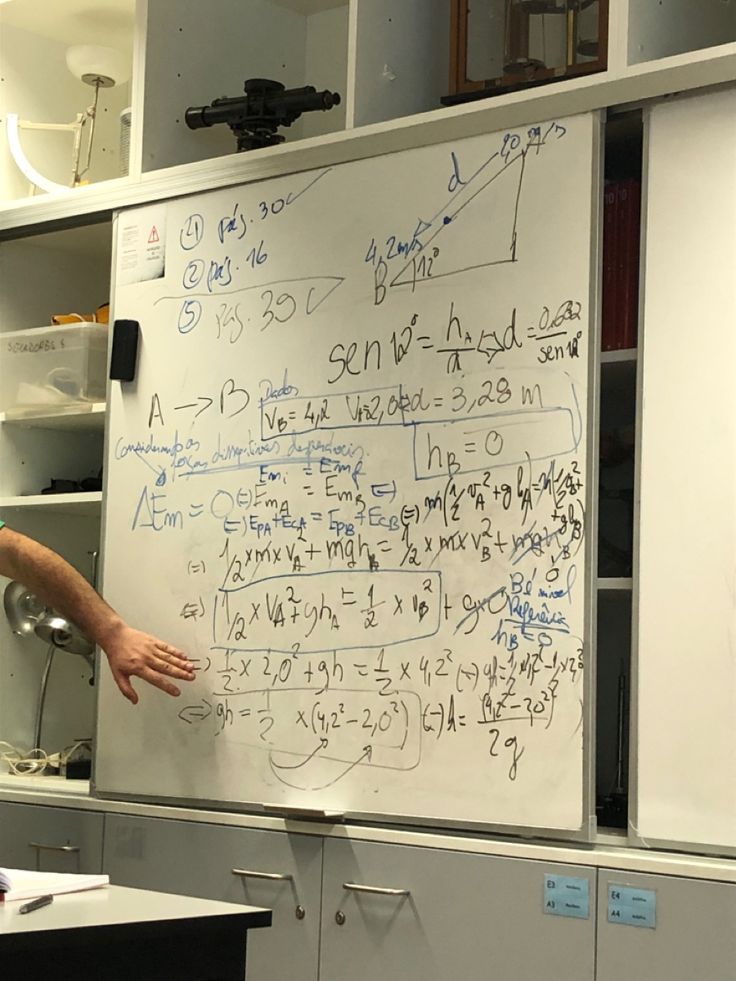 ① pág. 30
② pág. 16
⑤ pág. 39
d 2,0 m/s
4,2 m/s
B 12°
sen 12° = hA/d ⇔ d = 0,682/sen 12°
A → B
Dados
vB = 4,2 vA = 2,0 ⇔ d = 3,28 m
hB = 0
Considerando as
forças dissipativas
Emi = Emf
ΔEm = 0 ⇔ EmA = EmB ⇔
⇔ EpA + EcA = EpB + EcB ⇔ m(1/2 vA² + ghA) = m(1/2 vB² + ghB)
⇔ 1/2 × m × vA² + mghA = 1/2 × m × vB² + mghB
⇔ 1/2 × vA² + ghA = 1/2 × vB² + g×0
B é nível
Referência
hB = 0
⇔ 1/2 × 2,0² + gh = 1/2 × 4,2² ⇔ gh = 1/2 × 4,2² - 1/2 × 2,0²
⇔ gh = 1/2 × (4,2² - 2,0²) ⇔ h = (4,2² - 2,0²)/2g
E3
A3
E4
A4